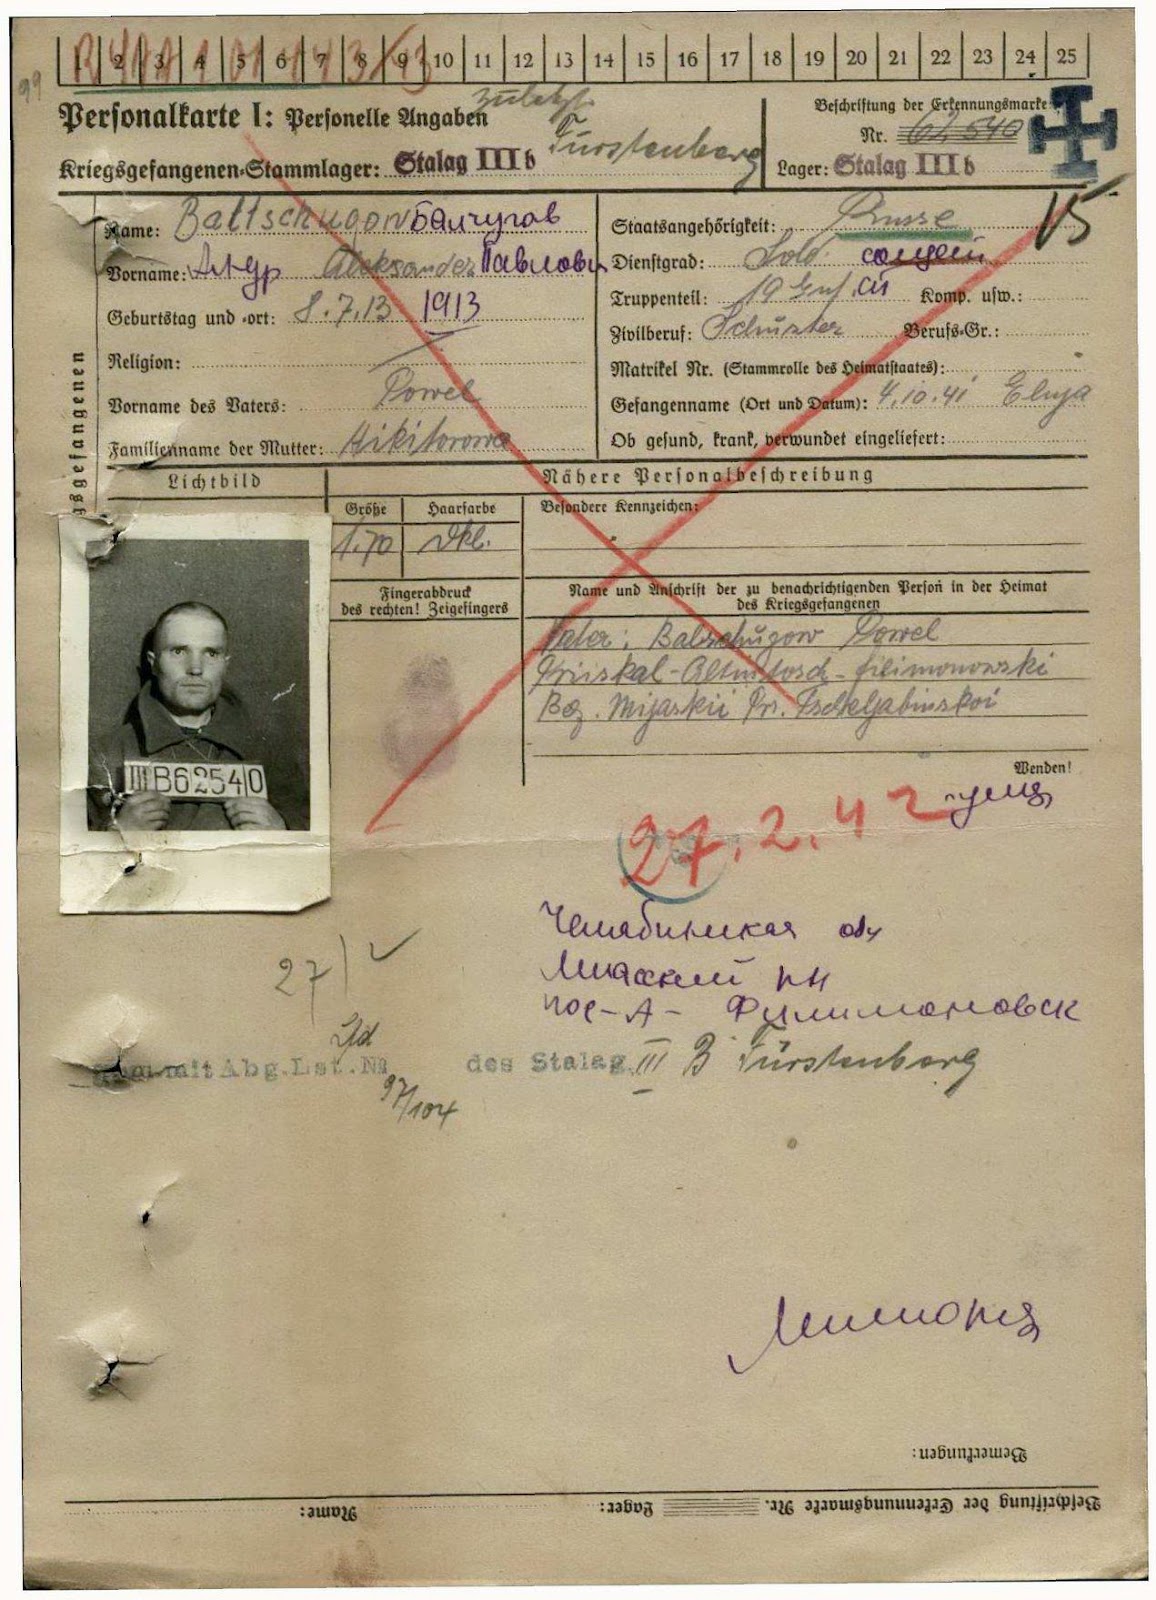 1 2 3 4 5 6 7 8 9 10 11 12 13 14 15 16 17 18 19 20 21 22 23 24 25
Personalkarte I: Personelle Angaben
zuletzt
Fürstenberg
Kriegsgefangenen-Stammlager: Stalag III b
Beschriftung der Erkennungsmarke
Nr. 62540
Lager: Stalag III b
Name: Baltschugow Балчугов
Vorname: Aleksander Павлович
Geburtstag und -ort: 8.7.13 1913
Religion:
Vorname des Vaters: Powel
Familienname der Mutter: Nikitorowa
Staatsangehörigkeit: Russe
Dienstgrad: Sold.
Truppenteil: 19 Inf. Komp. usw.:
Zivilberuf: Schuster Berufs-Gr.:
Matrikel Nr. (Stammrolle des Heimatstaates):
Gefangenname (Ort und Datum): 4.10.41 Elnja
Ob gesund, krank, verwundet eingeliefert:
gsgefangenen
Lichtbild
Nähere Personalbeschreibung
Größe Haarfarbe
1.70 dkl.
Besondere Kennzeichen:
Fingerabdruck
des rechten! Zeigefingers
Name und Anschrift der zu benachrichtigenden Person in der Heimat
des Kriegsgefangenen
Vater: Baltschugow Powel
filimonowski
Bez. Mijaskii Tscheljabinskoi
III B62540
Wenden!
27.2.42
Челябинская обл
Миасский рн
пос-А- Филимоновск
27
mit Abg. Lst. №
97/104
des Stalag III B Fürstenberg
Bemerkungen:
Beschriftung der Erkennungsmarke Nr. Lager: Name: